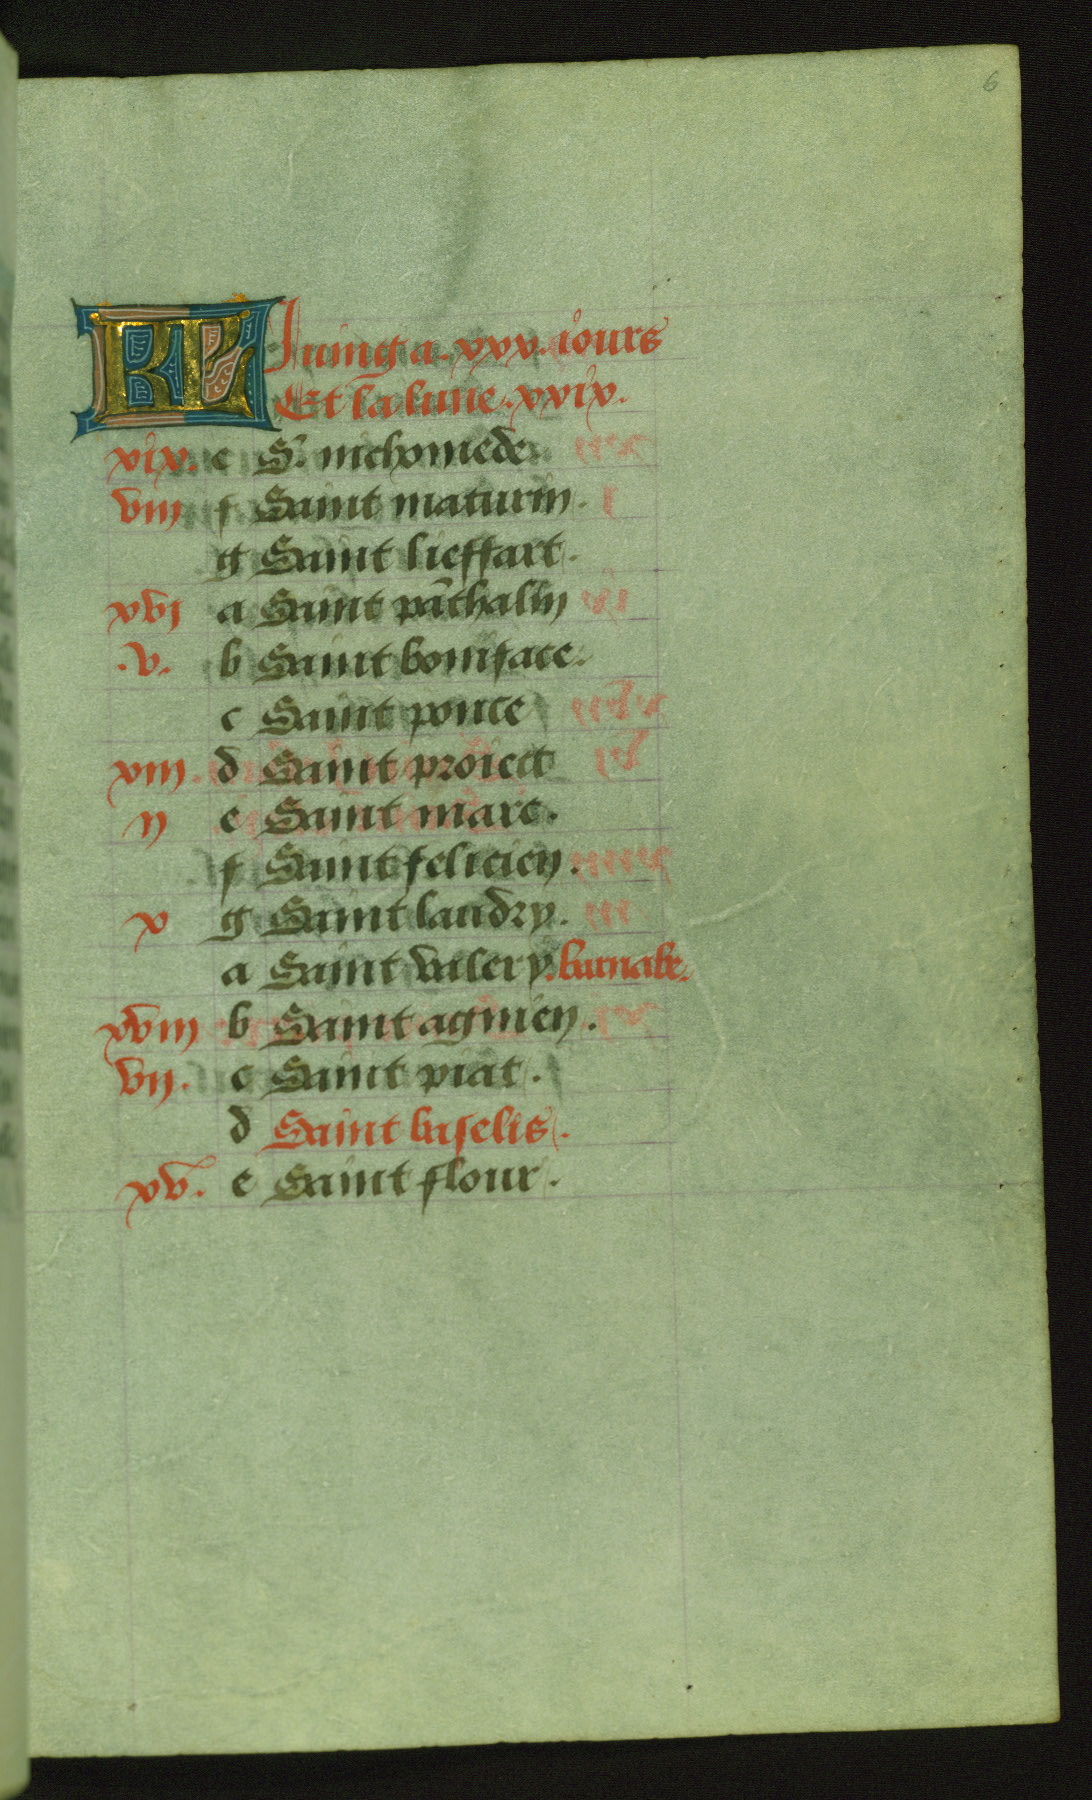 6
KL Juing a .xxx. iours
Et la lune .xxix.
xix. e S. nichomede.
viii f Saint maturin.
g Saint lieffart.
xvi a Saint pãthalin
.v. b Saint boniface.
c Saint ponce
xiii. d Saint proiect
ii e Saint marc.
f Saint felicien.
x g Saint landry.
a Saint valery. barnabe.
xviii b Saint agnien.
vii. c Saint piat.
d Saint baselis.
xv. e Saint flour.